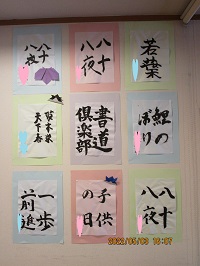 若葉
八十
八夜
八十
八夜
鯉の
ぼり
書道
倶楽部
天下春
八十
八夜
子供
の日
一歩
前進